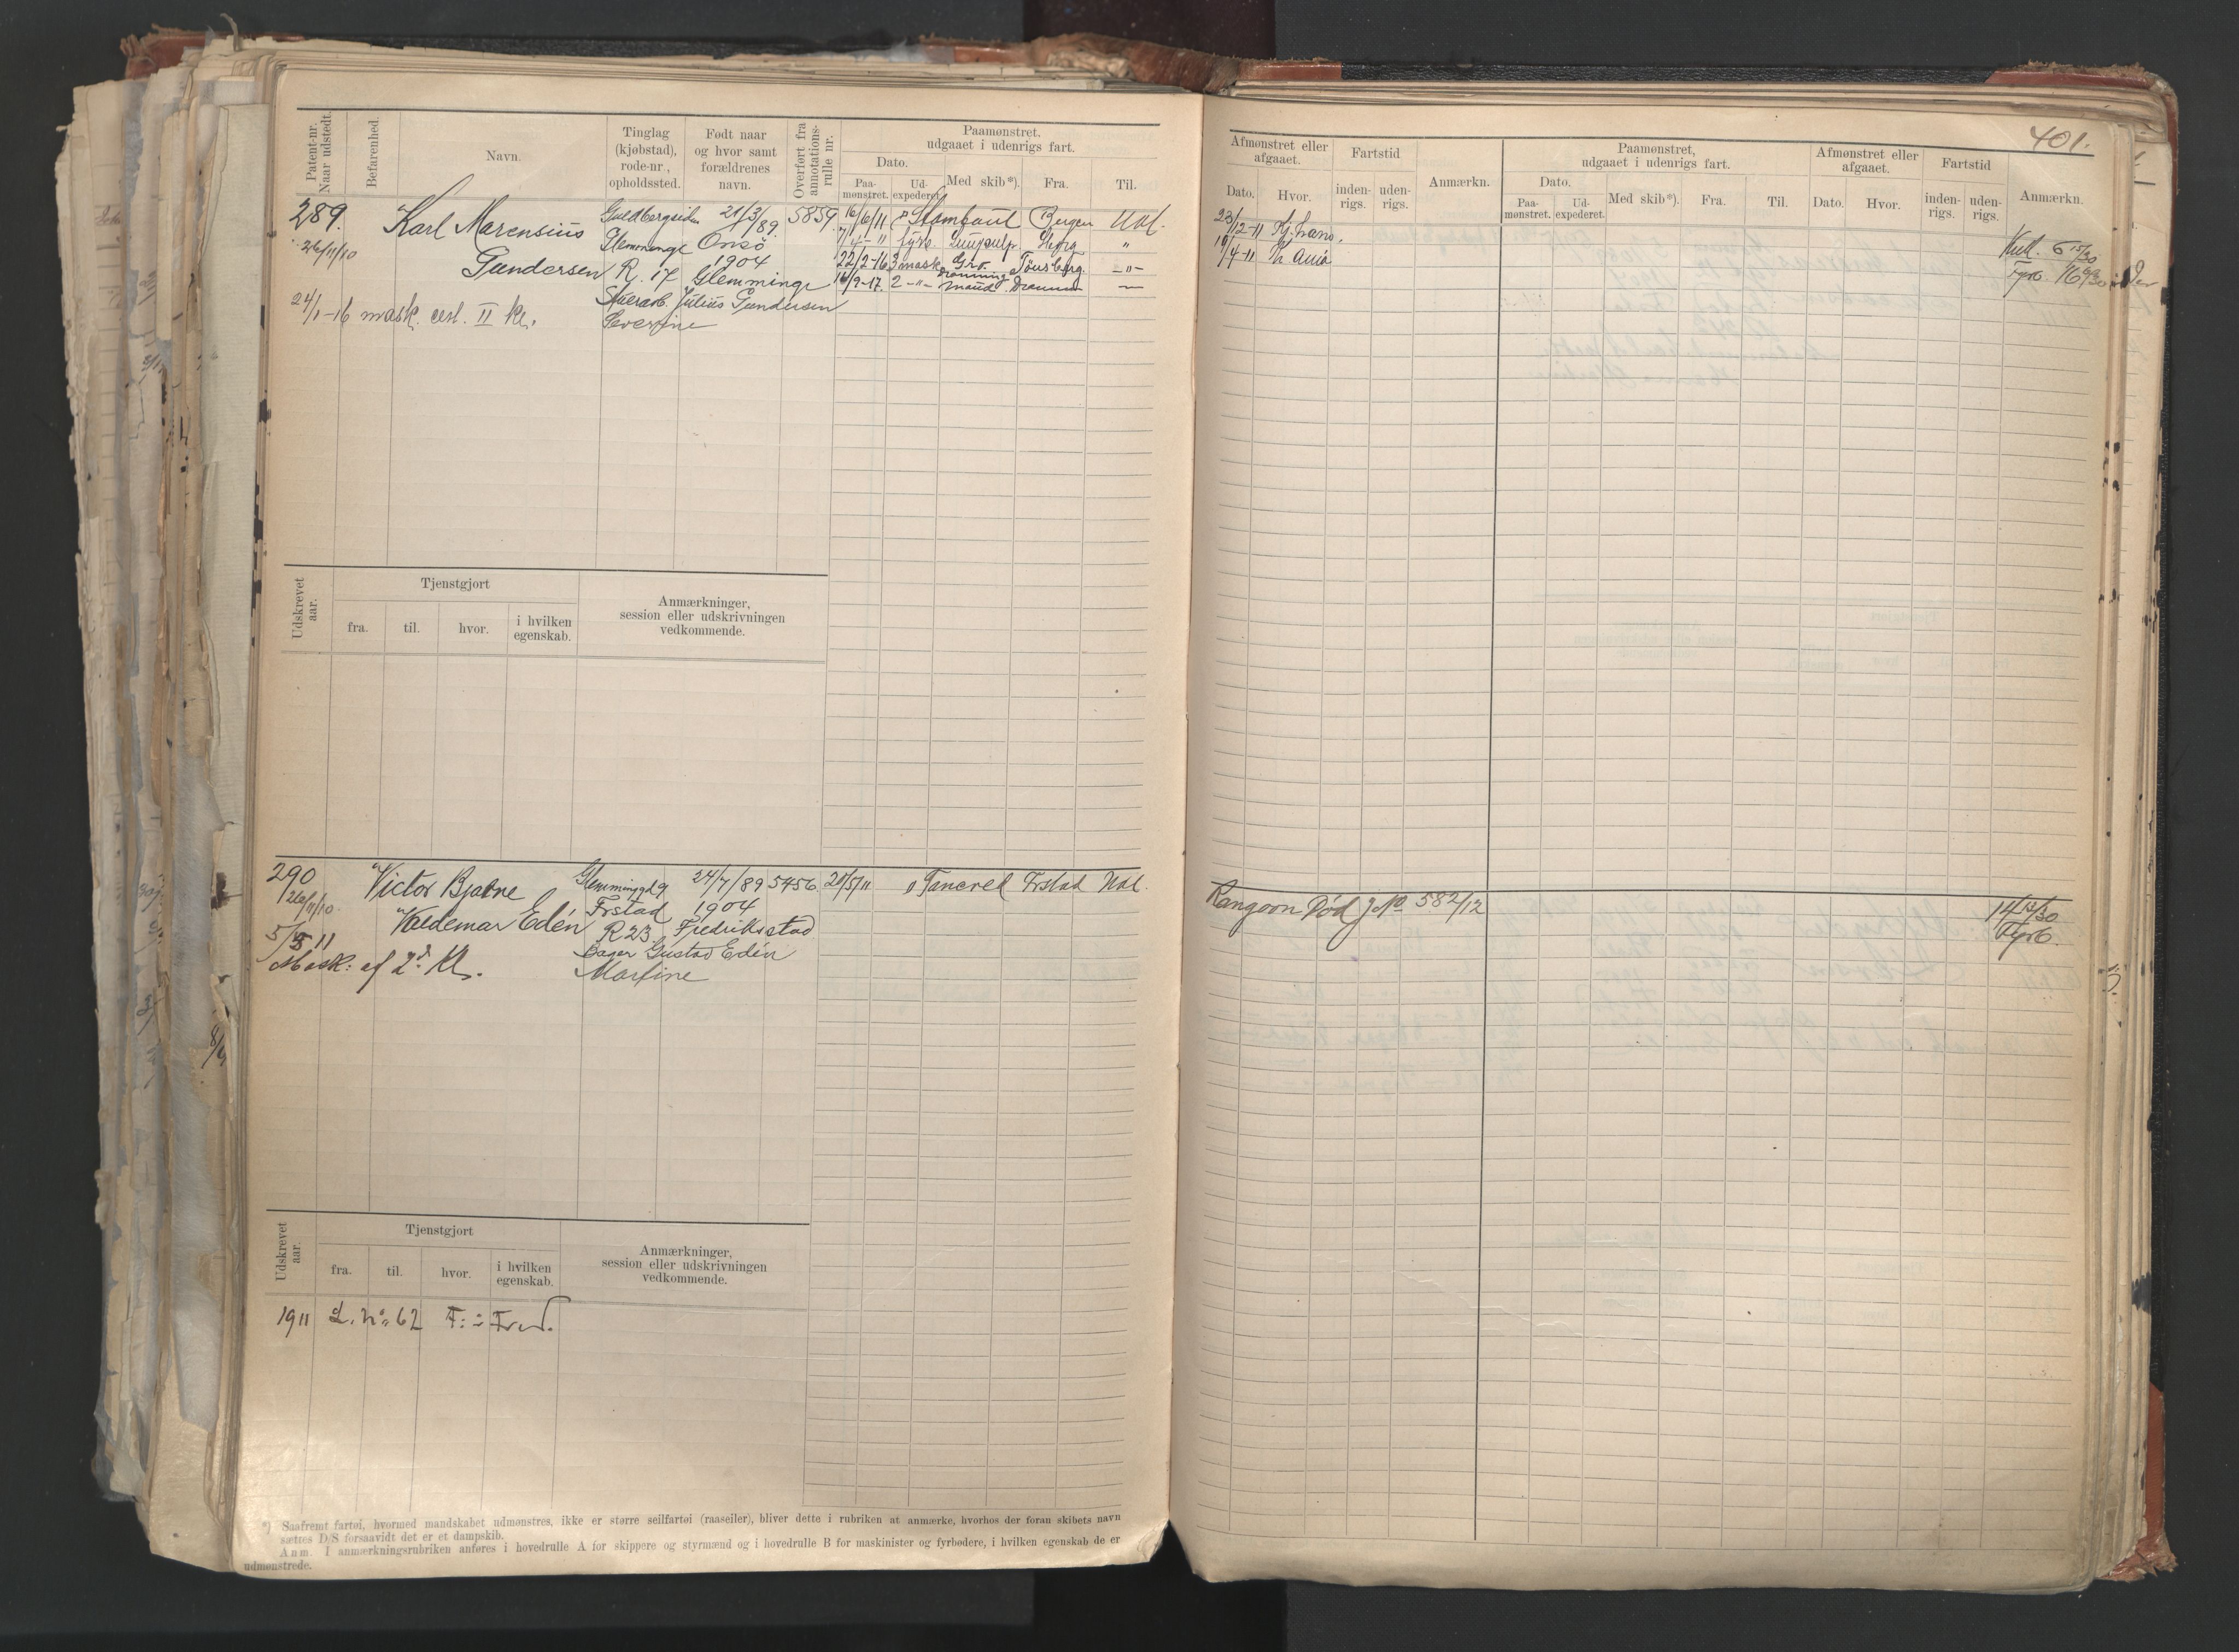 401.
Patent-nr. Naar udstedt.
Befarenhed.
Navn.
Tinglag (kjøbstad), rode-nr., opholdssted.
Født naar og hvor samt forældrenes navn.
Overført fra annotations-rulle nr.
Paamønstret, udgaaet i udenrigs fart.
Dato.
Paa-mønstret.
Ud-expederet.
Med skib*).
Fra.
Til.
289.
26/11/10
Karl Marensius
Gundersen
24/1-16 mask. cert. II kl.
Glemminge
R. 17
21/3/89.
Onsö
1904
Glemminge
Julius Gundersen
Severine
5859
16/6/11
Bergen
Udl.
22/2-16 3 mask Gro. Tönsberg. -"-
14/9-17. 2 -"- Dronning Maud. Drammen
Udskrevet aar.
Tjenstgjort
fra.
til.
hvor.
i hvilken egenskab.
Anmærkninger, session eller udskrivningen vedkommende.
290
26/11/10
Victor Bjarne
Valdemar Edén
5/5 11
Mask: af 2d Kl.
Frstad
R 23
24/7/89
1904
Fredriksstad
Gustav Edén
Martine
5456
Tancred Frstad Udl.
Udskrevet aar.
Tjenstgjort
fra.
til.
hvor.
i hvilken egenskab.
Anmærkninger, session eller udskrivningen vedkommende.
1911 L. No 62
*) Saafremt fartøi, hvormed mandskabet udmønstres, ikke er større seilfartøi (raaseiler), bliver dette i rubriken at anmærke, hvorhos der foran skibets navn
sættes D/S forsaavidt det er et dampskib.
Anm. I anmærkningsrubriken anføres i hovedrulle A for skippere og styrmænd og i hovedrulle B for maskinister og fyrbødere, i hvilken egenskab de er
udmønstrede.
Afmønstret eller afgaaet.
Dato.
Hvor.
Fartstid
inden-rigs.
uden-rigs.
Anmærkn.
Paamønstret, udgaaet i udenrigs fart.
Dato.
Paa-mønstret.
Ud-expederet.
Med skib*).
Fra.
Til.
Afmønstret eller afgaaet.
Dato.
Hvor.
Fartstid
inden-rigs.
uden-rigs.
Anmærkn.
23/12-11 Kj.havn.
19/4-11
6 15/30
Fyrb.
Rangoon Död J.No 582/12
14 13/30
Fyrb.